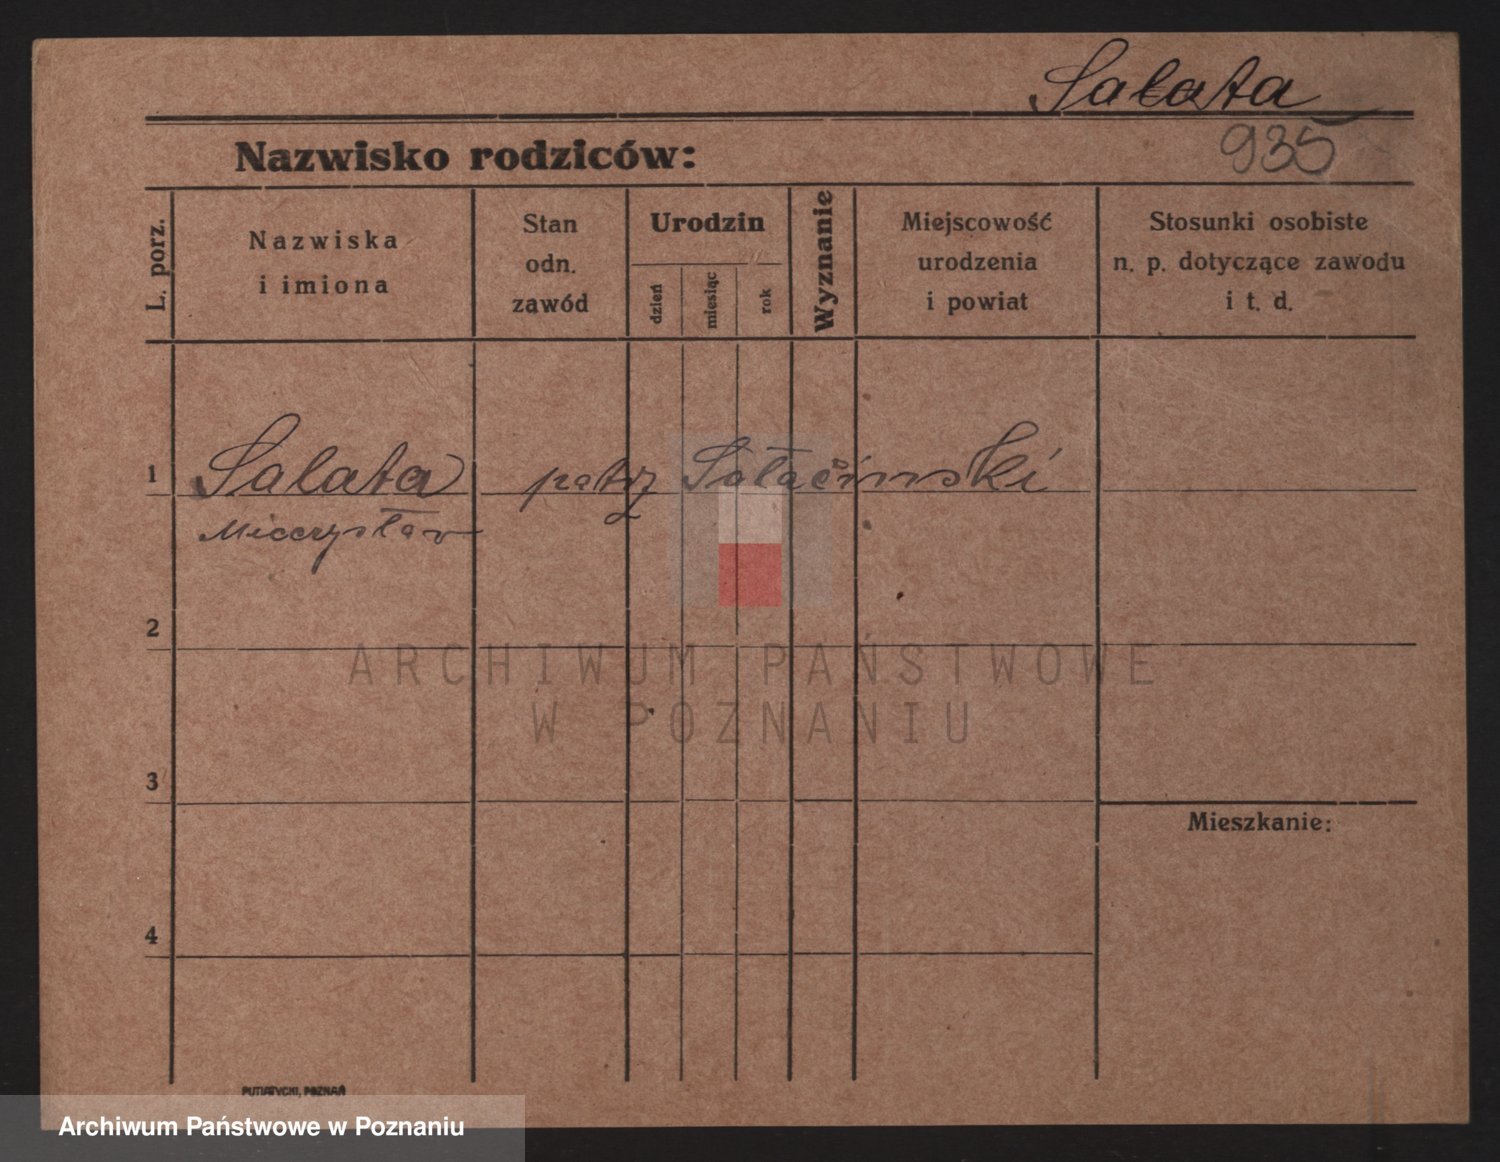 Sałata
935
Nazwisko rodziców:
L. porz.
Nazwiska
i imiona
Stan
odn.
zawód
Urodzin
dzień
miesiąc
rok
Wyznanie
Miejscowość
urodzenia
i powiat
Stosunki osobiste
n. p. dotyczące zawodu
i t. d.
1 Salata patrz Sałaciński
Mieczysław
2
3
Mieszkanie:
4
ARCHIWUM PAŃSTWOWE
W POZNANIU
PUTIATYCKI, POZNAŃ
Archiwum Państwowe w Poznaniu